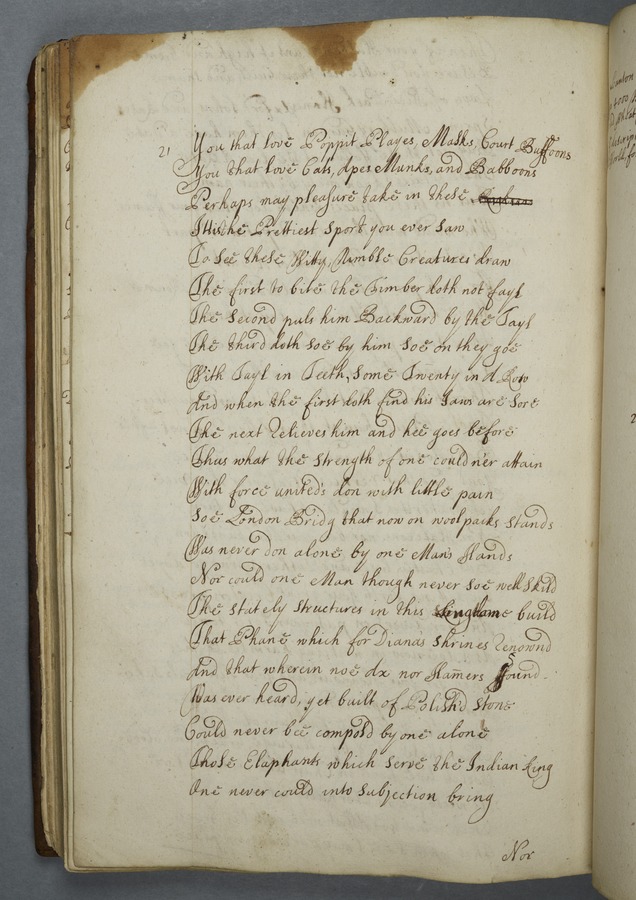 21 You that love Poppit Playes, Masks, Court Buffoons
You that love Cats, Apes Munks, and Babboons
Perhaps may pleasure take in these
Itts the Prettiest sport you ever saw
To see these Witty, Nimble Creatures draw
The first to bite the Timber doth not fayl
The second puls him Backward by the Tayl
The third doth soe by him soe on they goe
With Tayl in Teeth, some Twenty in A Row
And when the first doth find his Jaws are sore
The next relieves him and hee goes before
Thus what the strength of one could n'er attain
With force united's don with little pain
Soe London Bridg that now on wool packs stands
Was never don alone by one Man's Hands
Nor could one Man though never soe well skild
The stately structures in this build
That Phane which for Dianas shrines renownd
And that wherein noe Ax nor Hamers sound
Was ever heard, yet built of Polish'd stone
Could never bee compos'd by one alone
Those Elaphants which serve the Indian King
One never could into subjection bring
Nor